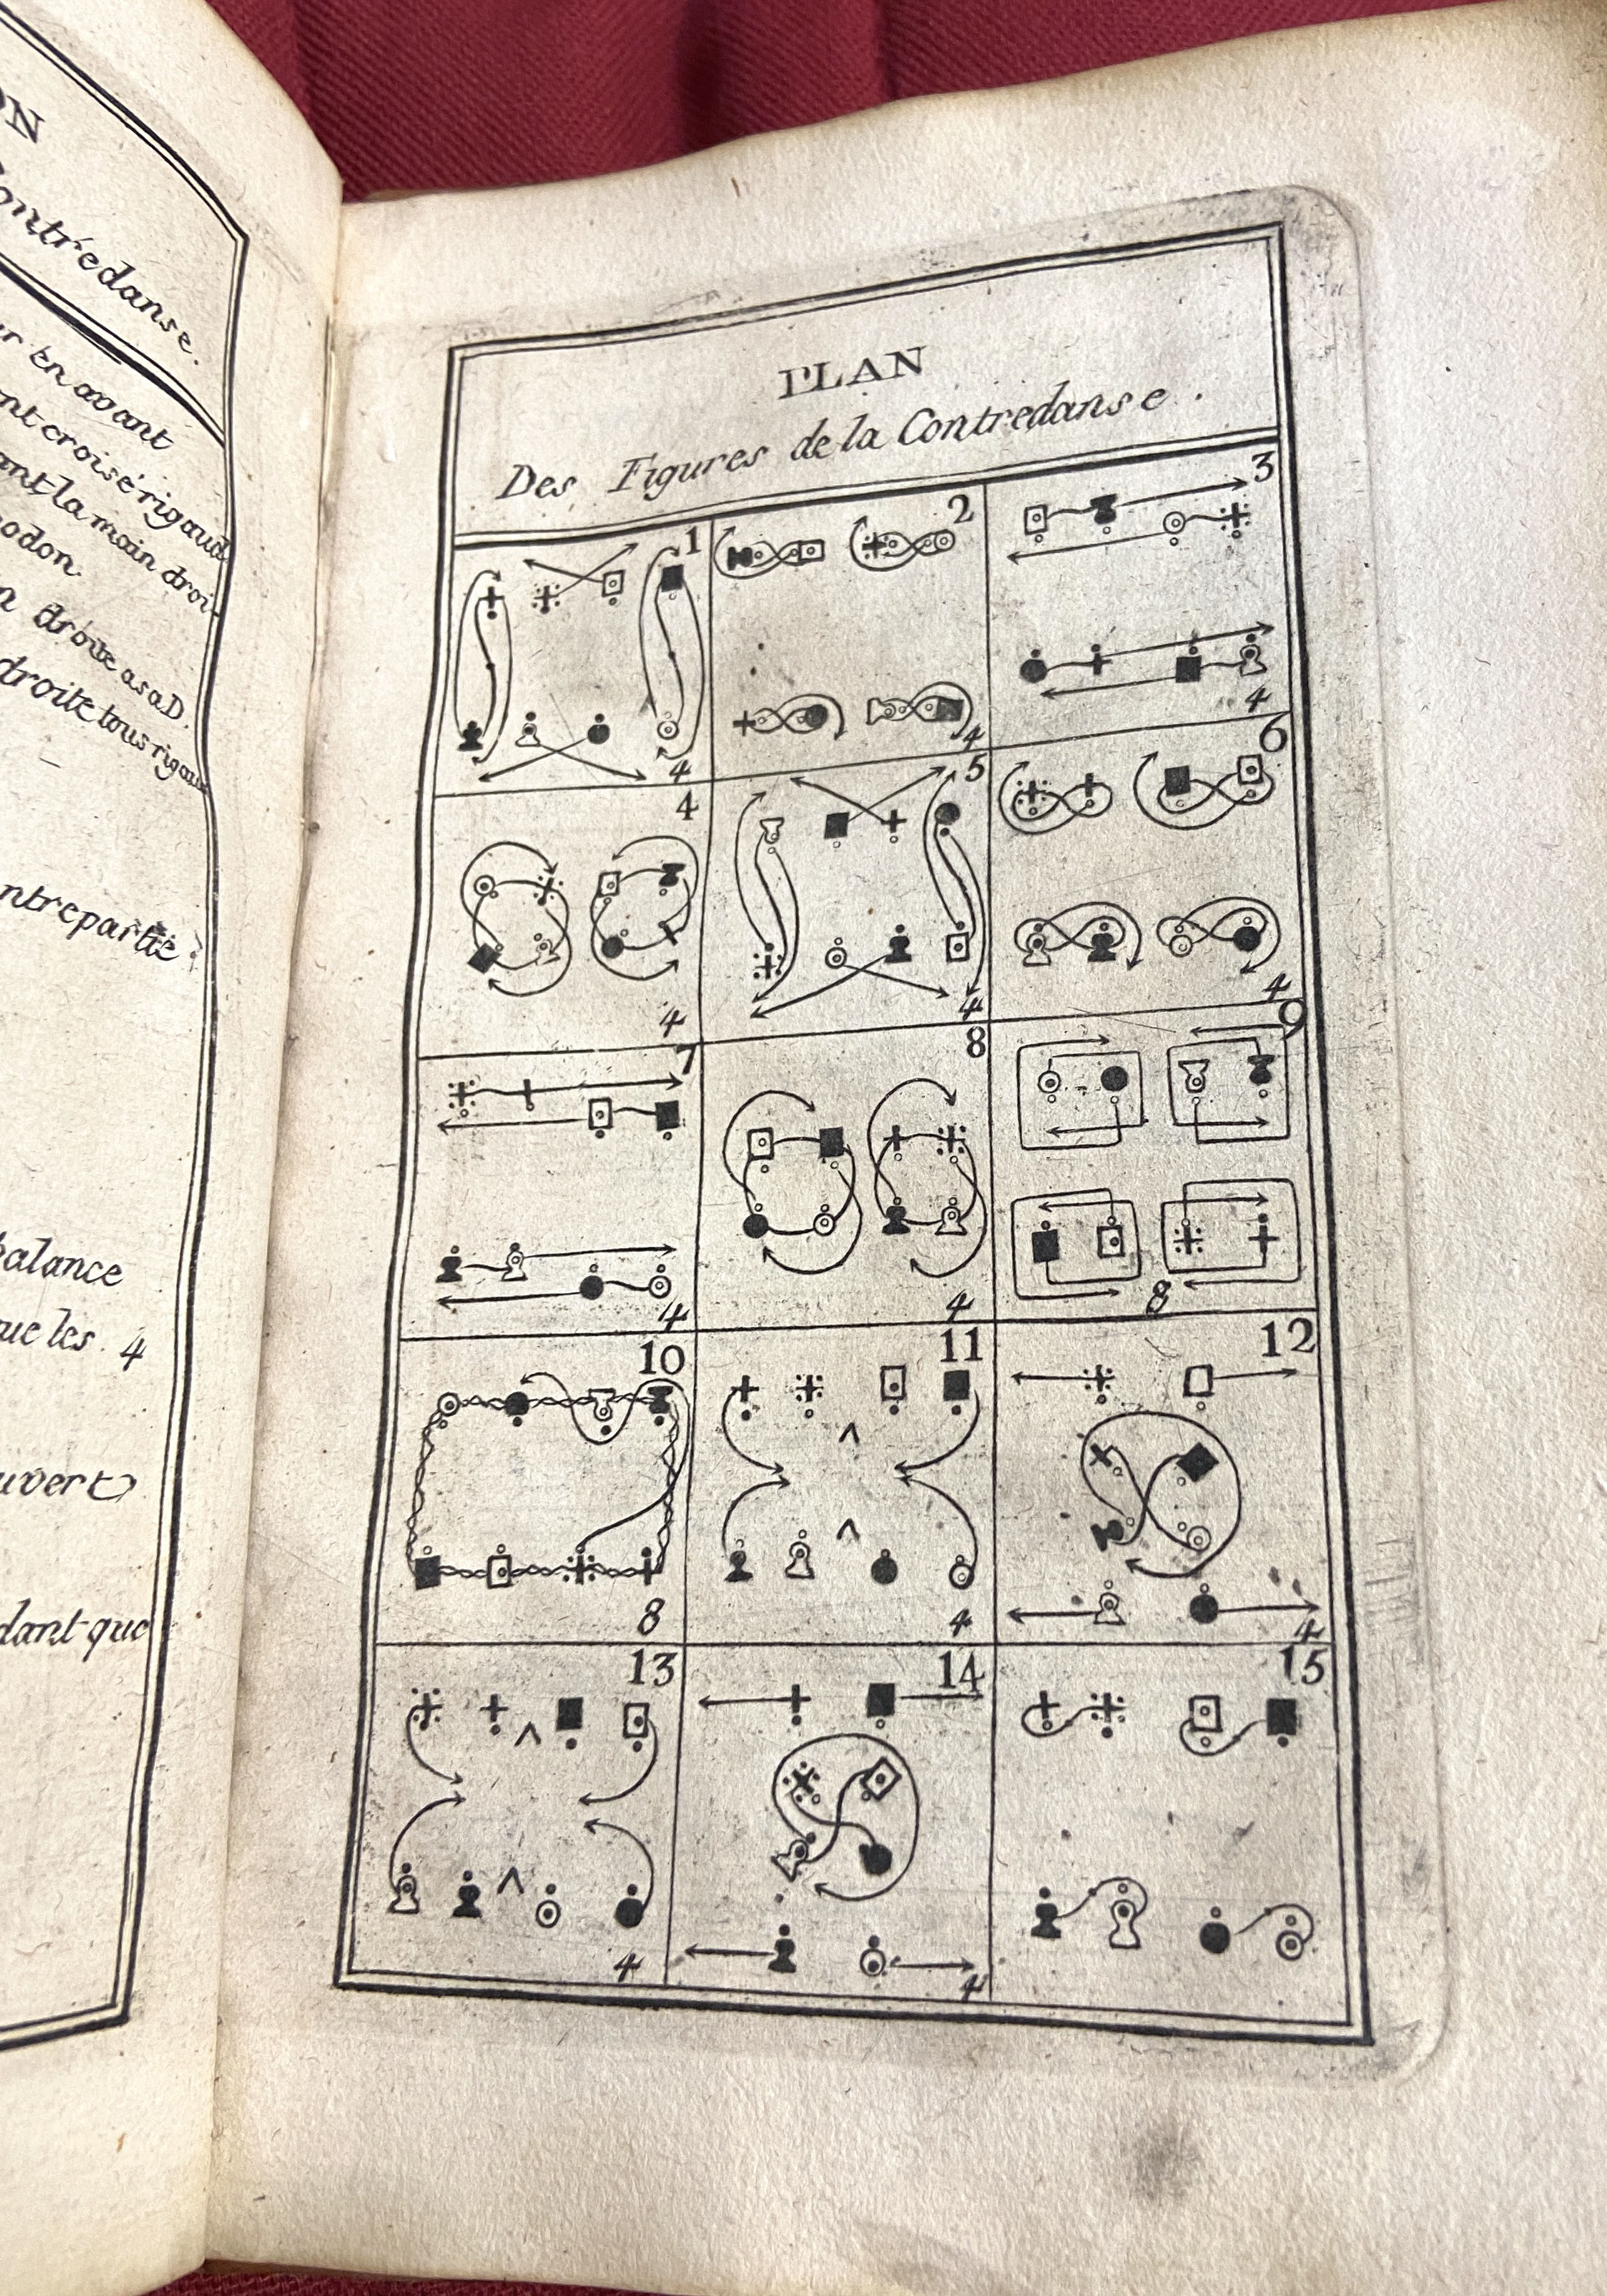 ON
Contredanse.
en avant
croisé rigaud
la main droi-
odon
droite asa D.
droite tous rigau
ntrepartie
balance
que les 4
uvert
dant que
PLAN
Des Figures de la Contredanse.
1
2
3
4
4
4
4
5
6
4
4
4
7
8
9
4
4
8
10
11
12
8
4
4
13
14
15
4
4